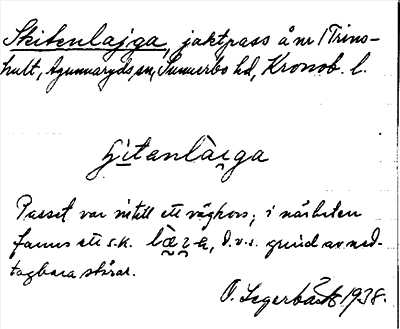 Skitenlajga, jaktpass å nr 1 Trins-
hult, Agunnaryds sn, Sunnerbo hd, Kronob. l.
Passet var intill ett vägkors; i närheten
fanns ett s.k. d.v.s. grind av ned-
tagbara störar.
O. Segerbäck 1938.